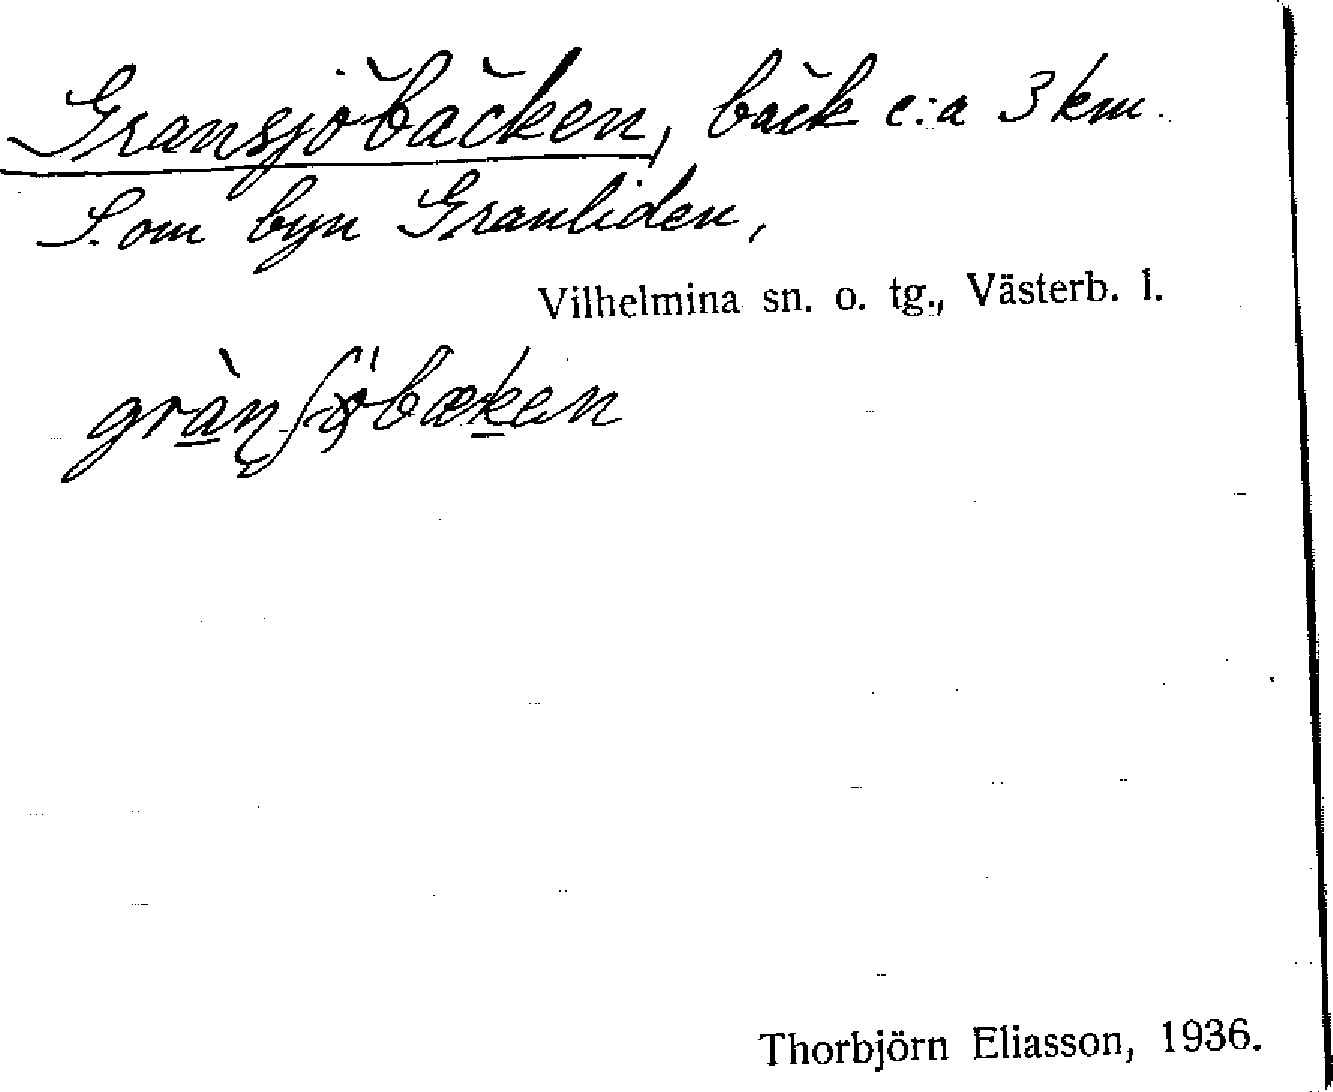 Gransjöbäcken, bäck c:a 3 km.
S. om byn Granliden,
Vilhelmina sn. o. tg., Västerb. l.
Thorbjörn Eliasson, 1936.